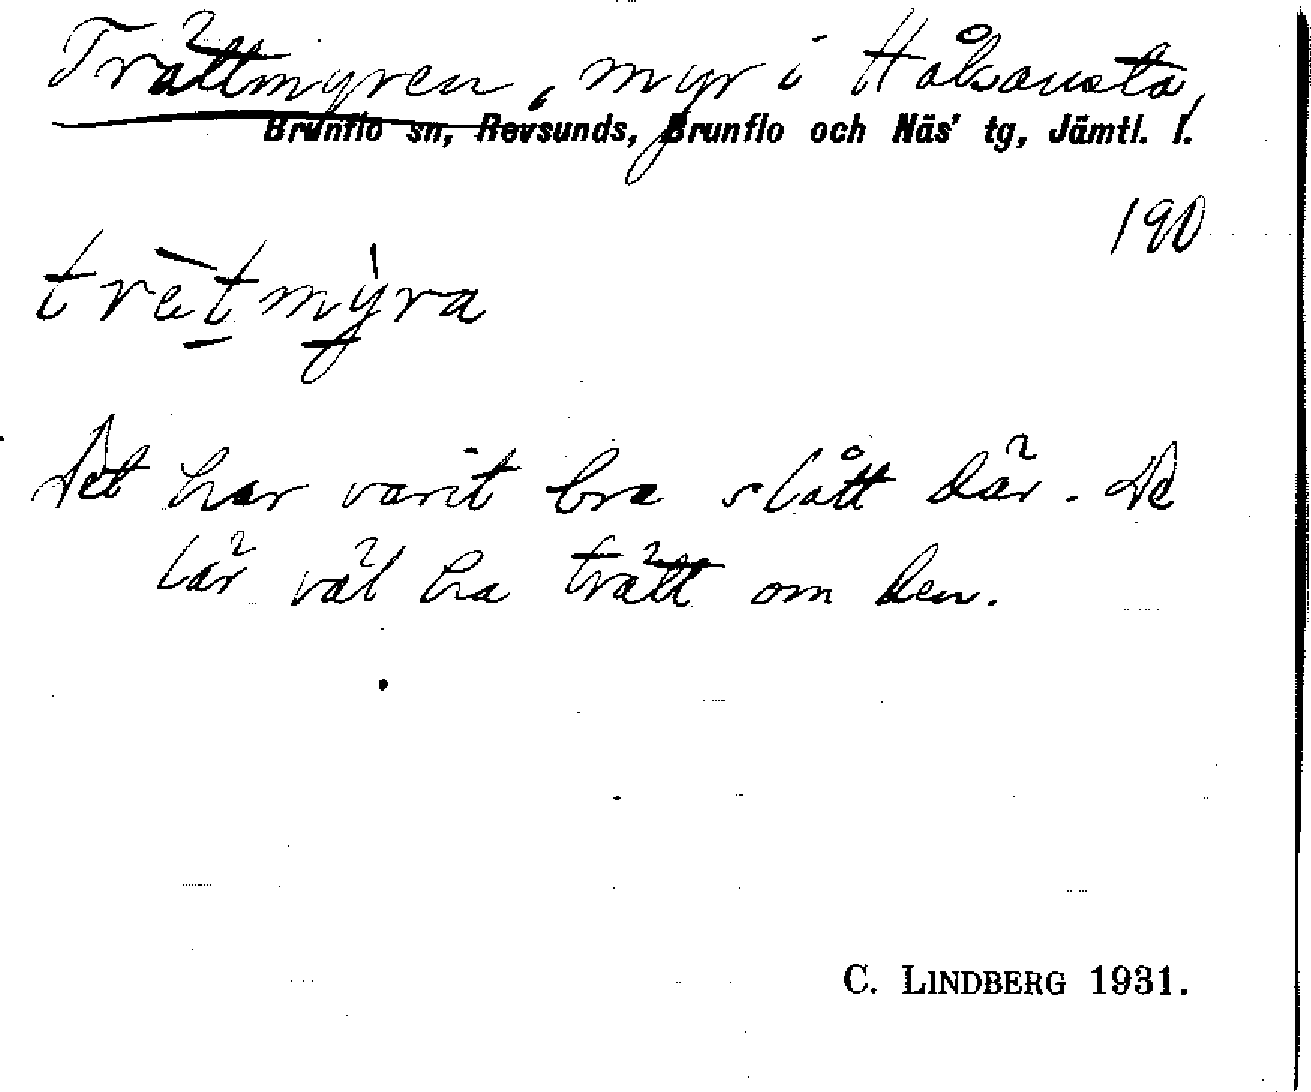 Trättmyren, myr i Håksåsta,
Brunflo sn, Revsunds, Brunflo och Näs' tg, Jämtl. l.
190
trètmỳra
Det har varit bra slått där. De
lär väl ha trätt om den.
C. LINDBERG 1931.